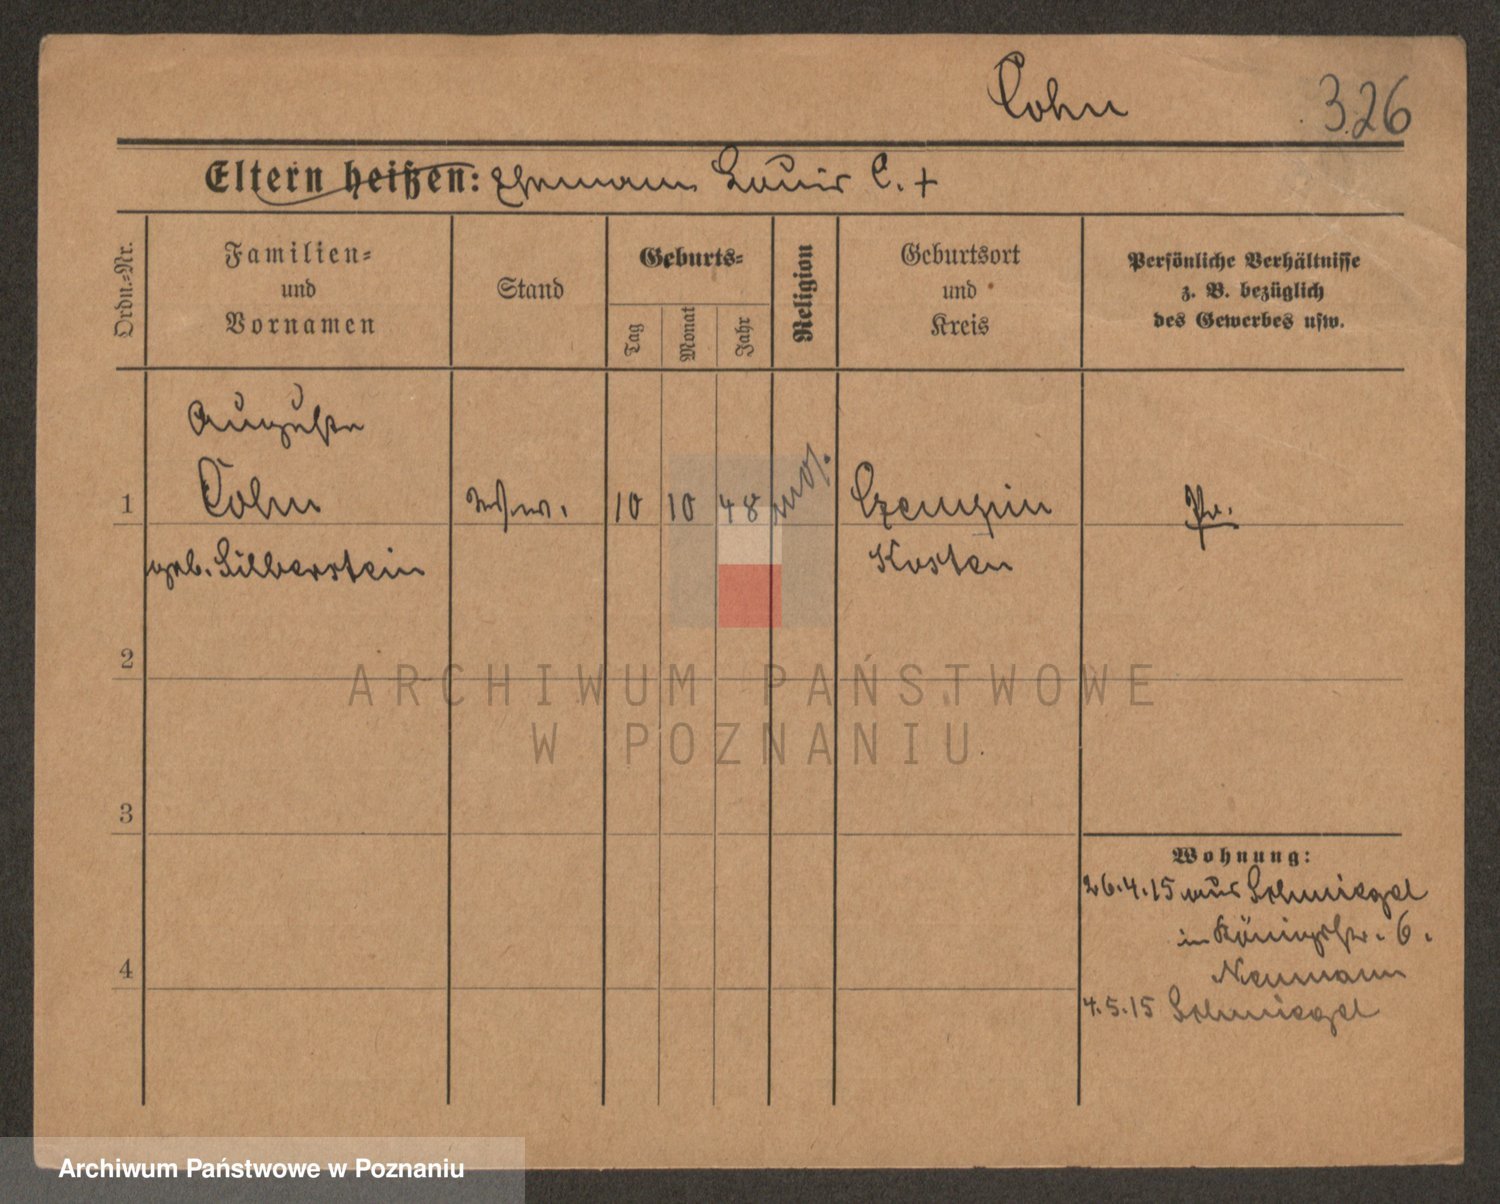 Cohn
326
Eltern heißen: Ehemann Louis C. +
Ordn.-Nr.
Familien-
und
Vornamen
Stand
Geburts-
Tag
Monat
Jahr
Religion
Geburtsort
und
Kreis
Persönliche Verhältnisse
z. B. bezüglich
des Gewerbes usw.
Auguste
1 Cohn Ww. 10 10 48 mos. Czempin Pr.
geb. Silberstein Kosten
2
3
4
Wohnung:
26.4.15 aus Schmiegel
in Königstr. 6.
Neumann
4.5.15 Schmiegel
ARCHIWUM PAŃSTWOWE
W POZNANIU
Archiwum Państwowe w Poznaniu